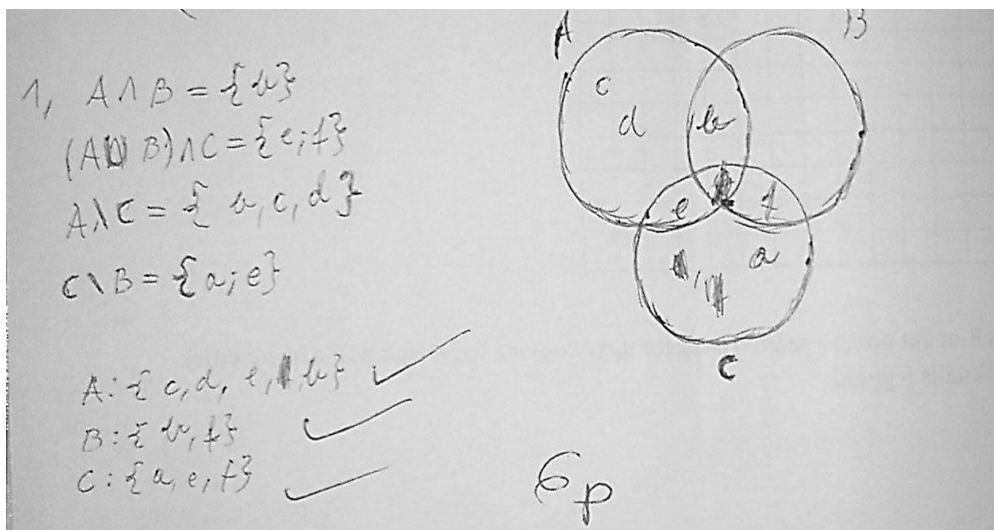 1, A ∩ B = {b}
(A ∪ B) ∩ C = {e; f}
A \ C = { b, c, d }
C \ B = {a; e}
A: { c, d, e, b}
B: { b, f}
C: {a, e, f}
A
B
c
d
b
e
f
a
C
6p